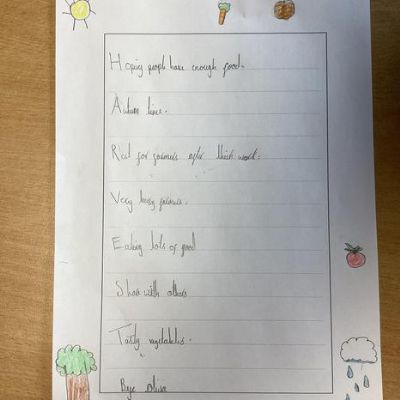 Hoping people have enough food.
Autum time.
Rest for farmers after their work.
Very busy farmers.
Eating lots of food
Share with others
Tasty vegetables.
Bye Olivia